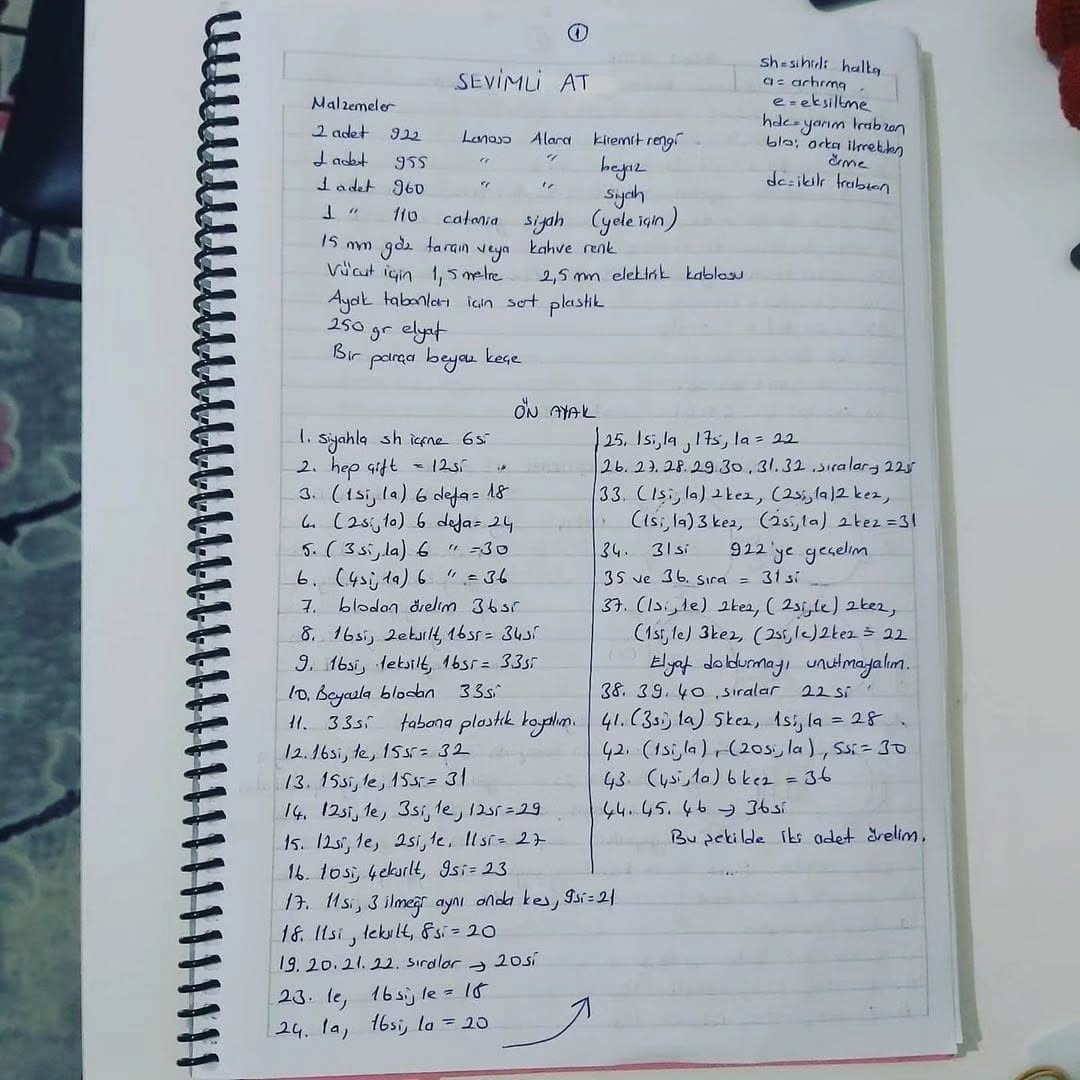 1
SEVİMLİ AT
sh=sihirli halka
a= artırma
e=eksiltme
hdc=yarım trabzan
blo: arka ilmekten
örme
dc=ikili trabzan
Malzemeler
2 adet 922 Lanoso Alara kiremit rengi
1 adet 955 " " beyaz
1 adet 960 " " siyah
1 " 110 catania siyah (yele için)
15 mm göz tarçın veya kahve renk
Vücut için 1,5 metre 2,5 mm elektrik kablosu
Ayak tabanları için sert plastik
250 gr elyaf
Bir parça beyaz keçe
ÖN AYAK
1. siyahla sh içine 6si
2. hep çift = 12si
3. (1si, 1a) 6 defa= 18
4. (2si, 1a) 6 defa= 24
5. (3si, 1a) 6 " =30
6. (4si, 1a) 6 " = 36
7. blodan örelim 36si
8. 16si, 2eksilt, 16si= 34si
9. 16si, 1eksilt, 16si= 33si
10. Beyazla blodan 33si
11. 33si tabana plastik koyalım.
12. 16si, 1e, 15si= 32
13. 15si, 1e, 15si= 31
14. 12si, 1e, 3si, 1e, 12si=29
15. 12si, 1e, 2si, 1e, 11si= 27
16. 10si, 4eksilt, 9si= 23
17. 11si, 3 ilmeği aynı anda kes, 9si=21
18. 11si, 1eksilt, 8si= 20
19. 20. 21. 22. sıralar → 20si
23. 1e, 16si, 1e = 18
24. 1a, 16si, 1a = 20
25. 1si, 1a, 17si, 1a = 22
26. 27. 28. 29. 30. 31. 32. sıralar → 22si
33. (1si, 1a) 2kez, (2si, 1a) 2 kez,
(1si, 1a) 3 kez, (2si, 1a) 2 kez =31
34. 31si 922'ye geçelim
35 ve 36. sıra = 31si
37. (1si, 1e) 2kez, (2si, 1e) 2kez,
(1si, 1e) 3kez, (2si, 1e) 2kez = 22
Elyaf doldurmayı unutmayalım.
38. 39. 40. sıralar 22 si
41. (3si, 1a) 5kez, 1si, 1a = 28
42. (1si, 1a), (20si, 1a), 5si = 30
43. (4si, 1a) 6 kez = 36
44. 45. 46 → 36si
Bu şekilde iki adet örelim.